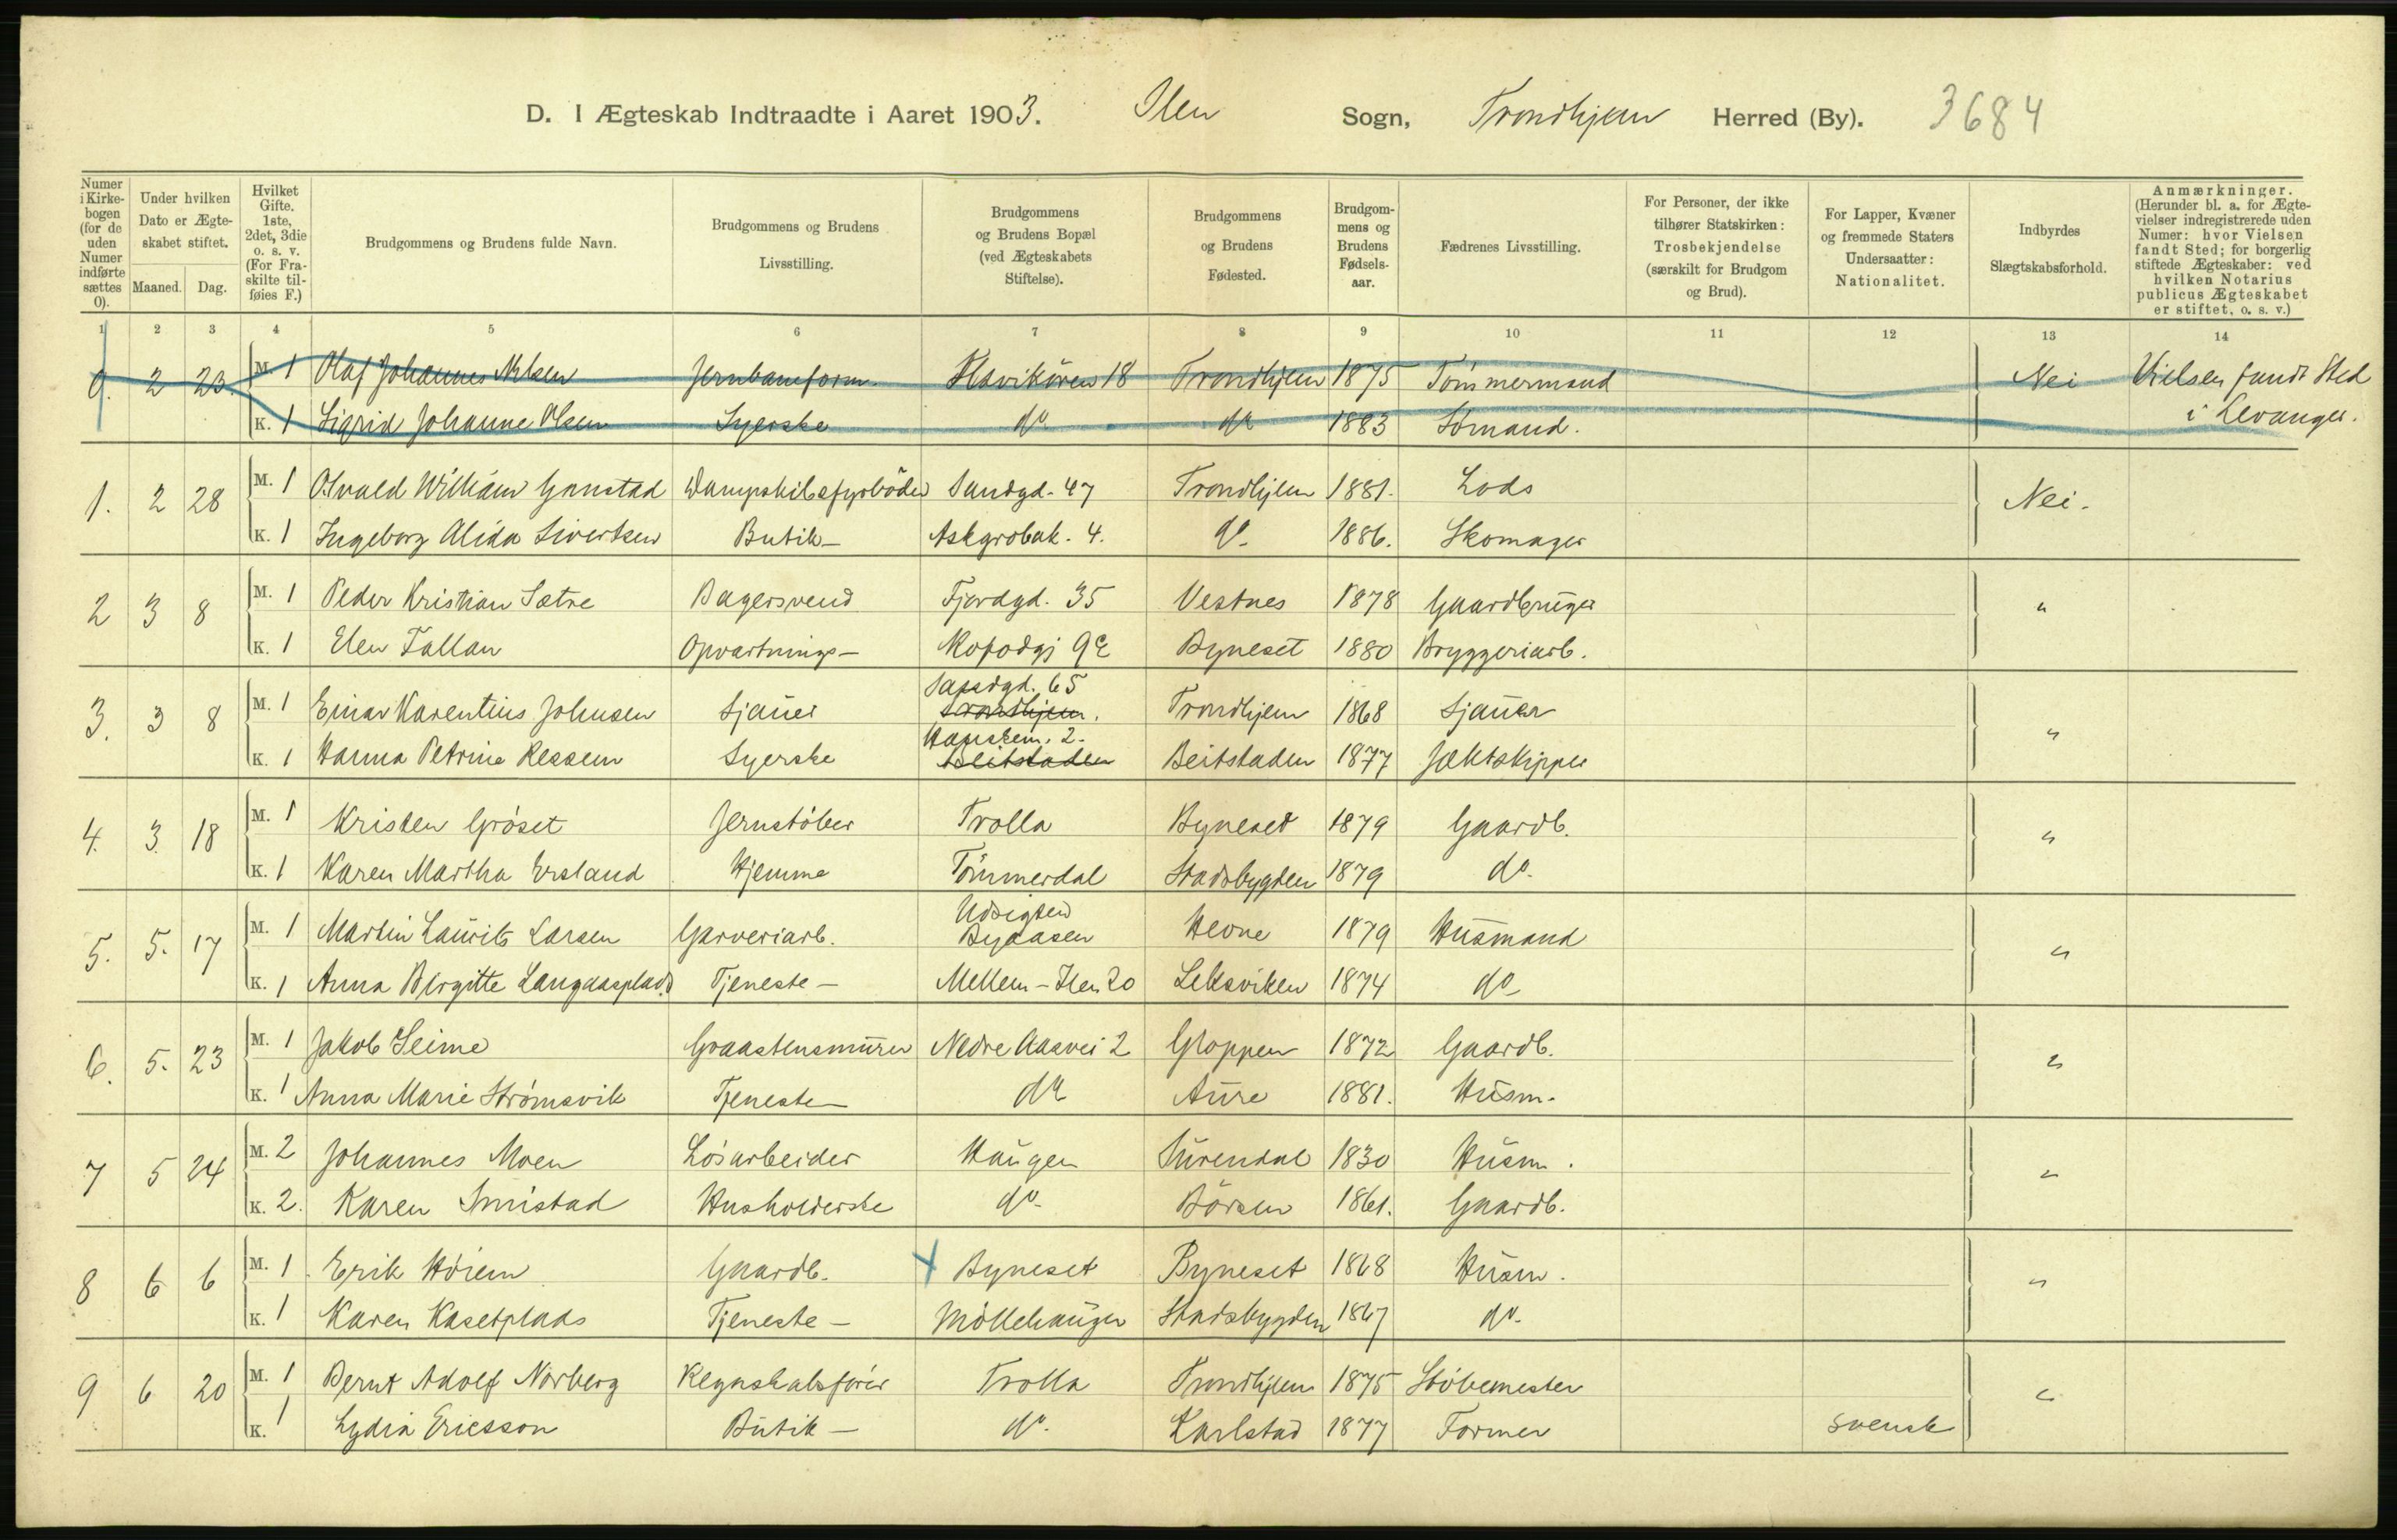 D. I Ægteskab Indtraadte i Aaret 1903. Ilen Sogn, Trondhjem Herred (By). 3684
Numer i Kirkebogen (for de uden Numer indførte sættes 0).
Under hvilken Dato er Ægteskabet stiftet.
Maaned. Dag.
Hvilket Gifte. 1ste, 2det, 3die o. s. v. (For Fraskilte tilføies F.)
Brudgommens og Brudens fulde Navn.
Brudgommens og Brudens Livsstilling.
Brudgommens og Brudens Bopæl (ved Ægteskabets Stiftelse).
Brudgommens og Brudens Fødested.
Brudgommens og Brudens Fødselsaar.
Fædrenes Livsstilling.
For Personer, der ikke tilhører Statskirken: Trosbekjendelse (særskilt for Brudgom og Brud).
For Lapper, Kvæner og fremmede Staters Undersaatter: Nationalitet.
Indbyrdes Slægtskabsforhold.
Anmærkninger. (Herunder bl. a. for Ægtevielser indregistrerede uden Numer: hvor Vielsen fandt Sted; for borgerlig stiftede Ægteskaber: ved hvilken Notarius publicus Ægteskabet er stiftet, o. s. v.)
1 2 3 4 5 6 7 8 9 10 11 12 13 14
0. 2 23. M. 1 Olaf Johannes Jernbaneform. 18 Trondhjem 1875 Tømmermand Nei Vielsen fandt Sted
K. 1 Sigrid Johanne Olsen Syerske do do 1883 Sømand. i Levanger.
1. 2 28 M. 1 Osvald William Dampskibsfyrbøder Sandgd. 47 Trondhjem 1881. Lods Nei.
K. 1 Ingeborg Alida Sivertsen Butik- 4. do. 1886. Skomager
2 3 8 M. 1 Peder Kristian Sætre Bagersvend Fjordgd. 35 Vestnes 1878 Gaardbruger "
K. 1 Elen Fallan Opvartnings- Byneset 1880 Bryggeriarb.
3. 3 8 M. 1 Einar Karentius Johnsen Sjauer 65 Trondhjem. Trondhjem 1868 Sjauer "
K. 1 Hanna Petrine Ressem Syerske 2. Beitstaden Beitstaden 1877 Jæktskipper
4. 3. 18 M. 1 Kristen Grøset Jernstøber Trolla Byneset 1879 Gaardb. "
K. 1 Karen Martha Ersland Hjemme Tømmerdal Stadsbygden 1879 do.
5. 5. 17 M. 1 Martin Laurits Larsen Garveriarb. Udsigten Byaasen Hevne 1879 Husmand "
K. 1 Anna Birgitte Langaasplads Tjeneste- Mellem-Ilen 20 Leksviken 1874 do-
6. 5. 23 M. 1 Jakob Seime Graastensmurer Nedre Aasvei 2 Gloppen 1872 Gaardb. "
K. 1 Anna Marie Strømsvik Tjeneste- do Aure 1881. Husm.
7 5 24 M. 2 Johannes Moen Løsarbeider Haugen Surendal 1830 Husm. "
K. 2. Karen Husholderske do. Børsen 1861. Gaardb.
8 6 6 M. 1 Erik Høiem Gaardb. Byneset Byneset 1868 Husm. "
K. 1 Karen Kasetplads Tjeneste- Møllehaugen Stadsbygden 1867 do.
9 6 20 M. 1 Bernt Adolf Norberg Regnskabsfører Trolla Trondhjem 1875 Støbemester "
K. 1 Lydia Ericsson Butik- do. Karlstad 1877 Former svensk